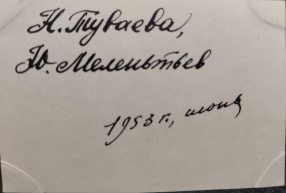 Н. Туваева,
Ю. Мелентьев
1953 г., июнь